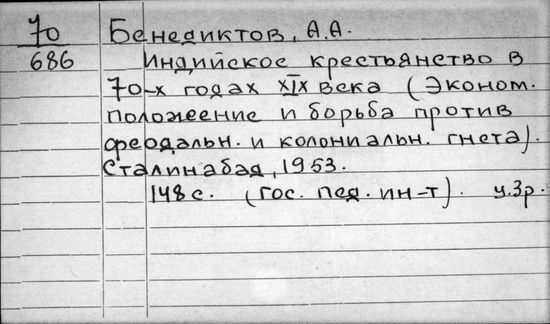 70 Бенедиктов, А.А.
686 Индийское крестьянство в
70-х годах XIX века (Эконом.
положение и борьба против
феодальн. и колониальн. гнета).
Сталинабад, 1953.
148 с. (Гос. пед. ин-т). ц.3р.